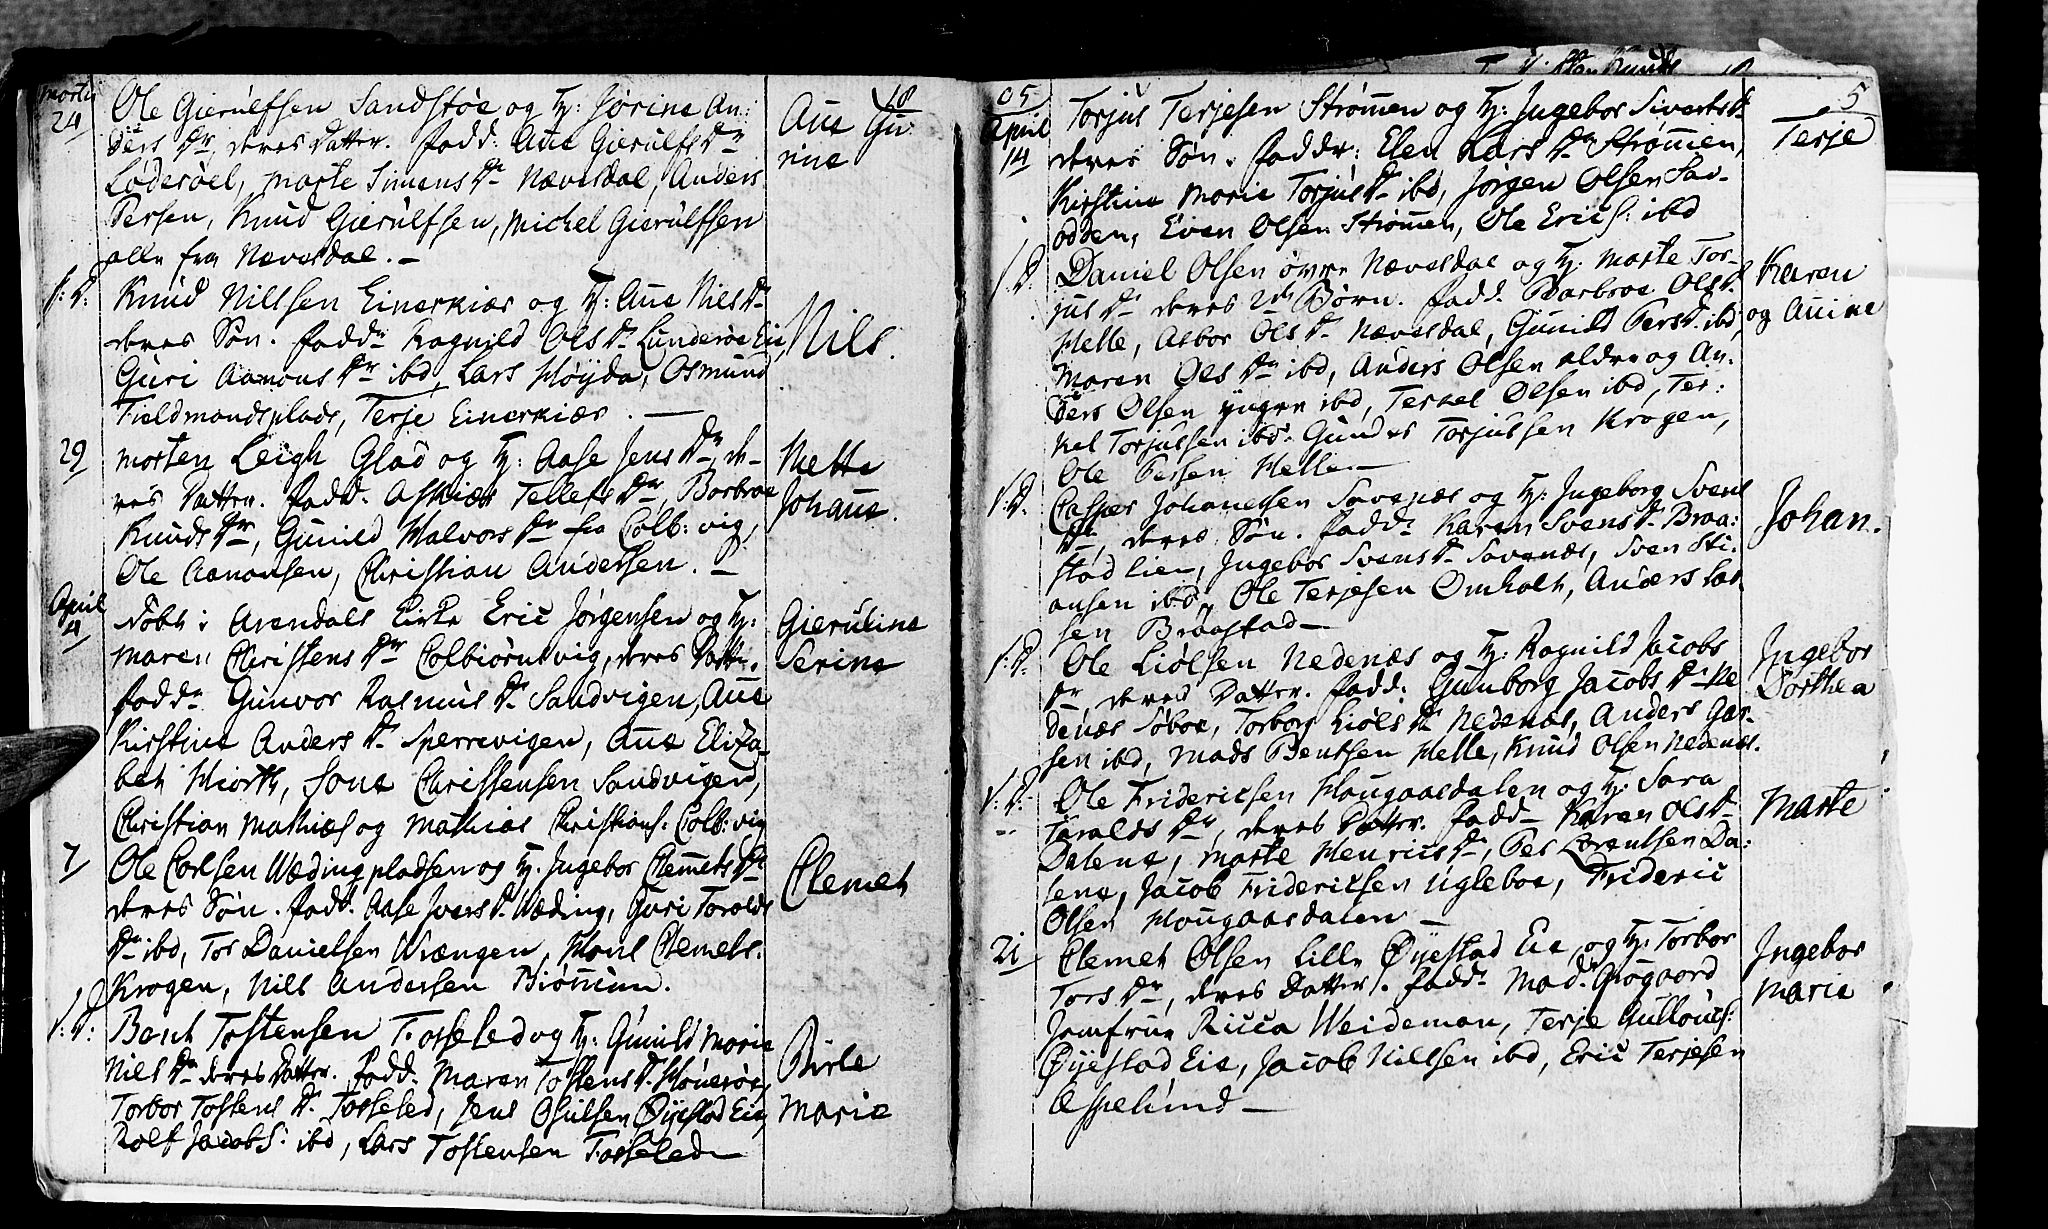 18
Marty
24
Ole Gierulfsen Sandstøe og H: Jørine An:
ders Dr, deres Datter. fadd: Ane Gierulfs Dr
Løderøel, Marte Simens Dr Næversdal, Anders
Persen, Knud Gierulfsen, Michel Gierulfsen
alle fra Næversdal. —
Ane Gu
rine
s: D:
Knud Nillsen Einerkiær og H: Ane Nils Dr
deres Søn. fadd. Ragnild Ols Dr Lunderøe Eie,
Guri Aanons Dr ibd, Lars Høyda, Osmund
Fieldmandsplads, Terje Einerkiær. —
Nils.
29
Morten Leigh Glad og H: Aase Jens Dr, de-
res Datter. fadd. Askiær Tellefs Dr, Barbroe
Knuds Dr, Gunild Halvors Dr fra Colb: vig,
Ole Aanonsen, Christian Andersen. —
Mette
Johane.
April
4
døbt i Arendals Kirke Eric Jørgensen og H:
Maren Christens Dr Colbiørnsvig, deres Datter.
fadd. Gunvor Rasmus Dr Sandvigen, Ane
Kirstine Anders Dr Sperrevigen, Ane Eliza-
bet Hiorth, Jone Christensen Sandvigen,
Christian Mathias og Mathias Christians: Colb: vig
Gieruline
Serine
7
Ole Carlsen Wædingpladsen og H. Ingebor Clemets Dr
deres Søn. fadd. Aase Ivers Dr Wæding, Guri Taralds
Dr ibd, Tor Danielsen Wrængen, Clemets:
Krogen, Nils Andersen Biønnum.
Clemet
s: D:
Bent Tostensen Fosseled og H: Gunild Marie
Niels Dr deres Datter. fadd: Maren Tostens Dr
Torbor Tostens Dr Fosseled, Jens Osulsen Øyestad Eie,
Rolf Jacobs: ibd, Lars Tostensen Fosseled
Birte
Marie
05
5
April
14
Torjus Terjesen Strømmen og H: Ingebor Siverts Dr
deres Søn. faddr: Elen Lars Dr Strømmen,
Kirstine Marie Torjus Dr ibd, Jørgen Olsen Sav-
odden, Even Olsen Strømmen, Ole Erics: ibd
Terje
s: D:
Daniel Olsen øvre Næversdal og H: Marte Tor-
jus Dr deres 2de Børn. fadd. Barbroe Ols Dr
Helle, Asbor Ols Dr Næversdal, Gunild Pers Dr ibd,
Maren Ols Dr ibd, Anders Olsen ældre og An-
ders Olsen yngre ibd, Terkel Olsen ibd, Ter:
kel Torjussen ibd. Gunder Torjussen Krogen,
Ole Persen Helle. —
Karen
og Anine
s: D:
Casper Johansen Savenæs og H: Ingeborg Svens
Dr, deres Søn. fadd. Karen Svens Dr Braa:
stad lien, Ingebor Svens Dr Savenæs, Sven Sti-
ansen ibd, Ole Terjesen Omholt, Anders Lar-
sen Braastad —
Johan.
s: D:
Ole Liølsen Nedenæs og H: Ragnild Jacobs
Dr, deres Datter. fadd: Gunborg Jacobs Dr Ne
denæs Søboe, Torborg Liøls Dr Nedenæs, Anders
sen ibd, Mads Bentsen Helle, Knud Olsen Nedenæs.
Ingebor
Dorthea
s: D:
Ole Fridericsen Hougaasdalen og H: Sara
Taralds Dr, deres Datter. fadd. Karen Ols Dr
Dalene, Marte Henrics Dr, Per Lorentsen Da:
lene, Jacob Fridericsen Ugleboe, Frideric
Olsen Hougaasdalen —
Marte
21
Clemet Olsen Lille Øyestad Eie og H: Torbor
Tors Dr, deres Datter. fadd. Mad. Grøgaard
Jomfrue Ricca Weideman, Terje Gullous:
Øyestad Eie, Jacob Nillsen ibd, Eric Terjesen
Espelund —
Ingebor
Marie